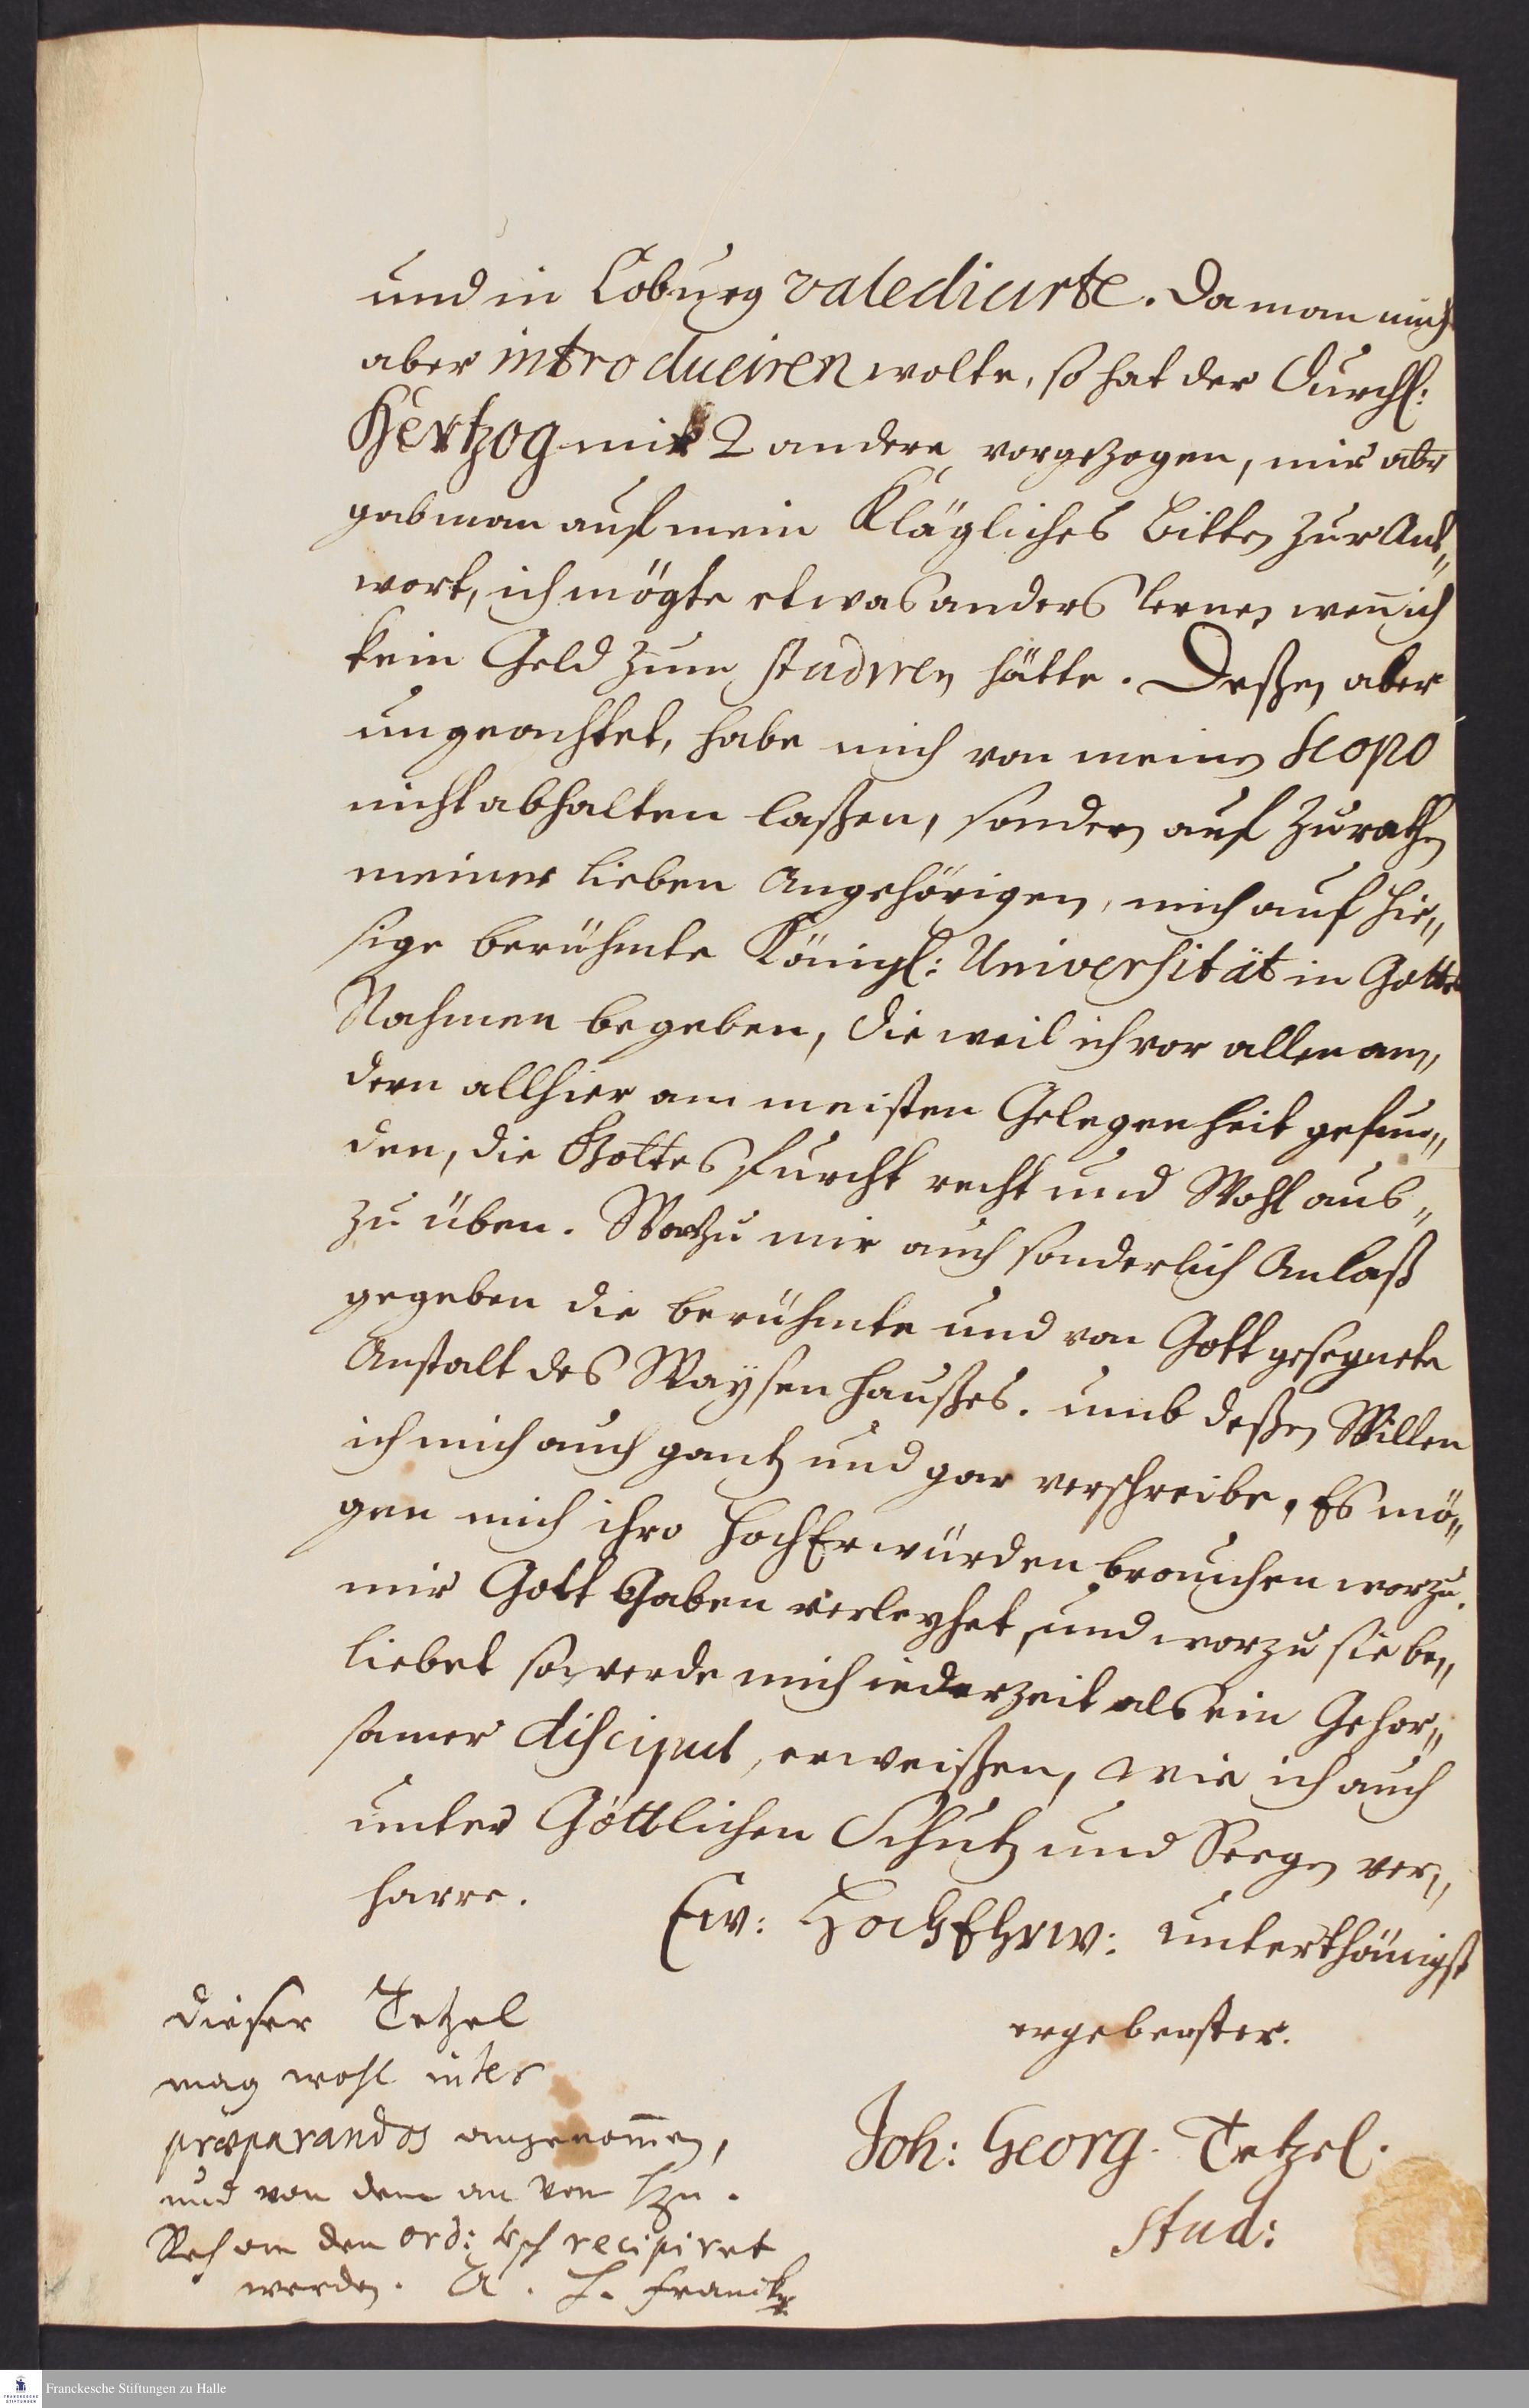 und in Coburg valedicirte. Da man mich
aber introduciren wolte, so hat der Durchl:
Hertzog mir 2 andere vorgezogen, mir aber
gab man auf mein Klägliches Bitten zur Ant„
wort, ich mögte etwas anders lernen wen̄ ich
kein Geld zum studiren hätte. Deßen aber
ungeachtet, habe mich von meinen Scopo
nicht abhalten laßen, sondern auf Zurathen
meiner lieben Angehörigen, mich auf hie„
sige berühmte Königl: Universität in Gottes
Nahmen begeben, die weil ich vor allen an„
dern allhier am meisten Gelegenheit gefun„
den, die Gottes furcht recht und Wohl aus„
zu üben. Worzu mir auch sonderlich Anlaß
gegeben die berühmte und von Gott gesegnete
Anstalt des Waysen haußes. umb deßen Willen
ich mich auch gantz und gar verschreibe, Es mö„
gen mich ihro HochErwürden brauchen worzu
mir Gott Gaben verleyhet, und worzu sie be„
liebet so werde mich iederzeit als ein Gehor„
samer discipul, erweißen, wie ich auch
unter Göttlichen Schutz und Seegen ver„
harre.
Ew: HochEhrw: unterthänigst
ergebenster.
Joh: Georg. Tetzel.
stud:
dieser Tetzel
mag wohl inter
præparandos angenom̄en,
und von dem an von
den ord: recipiret
werden. A. H. Francke